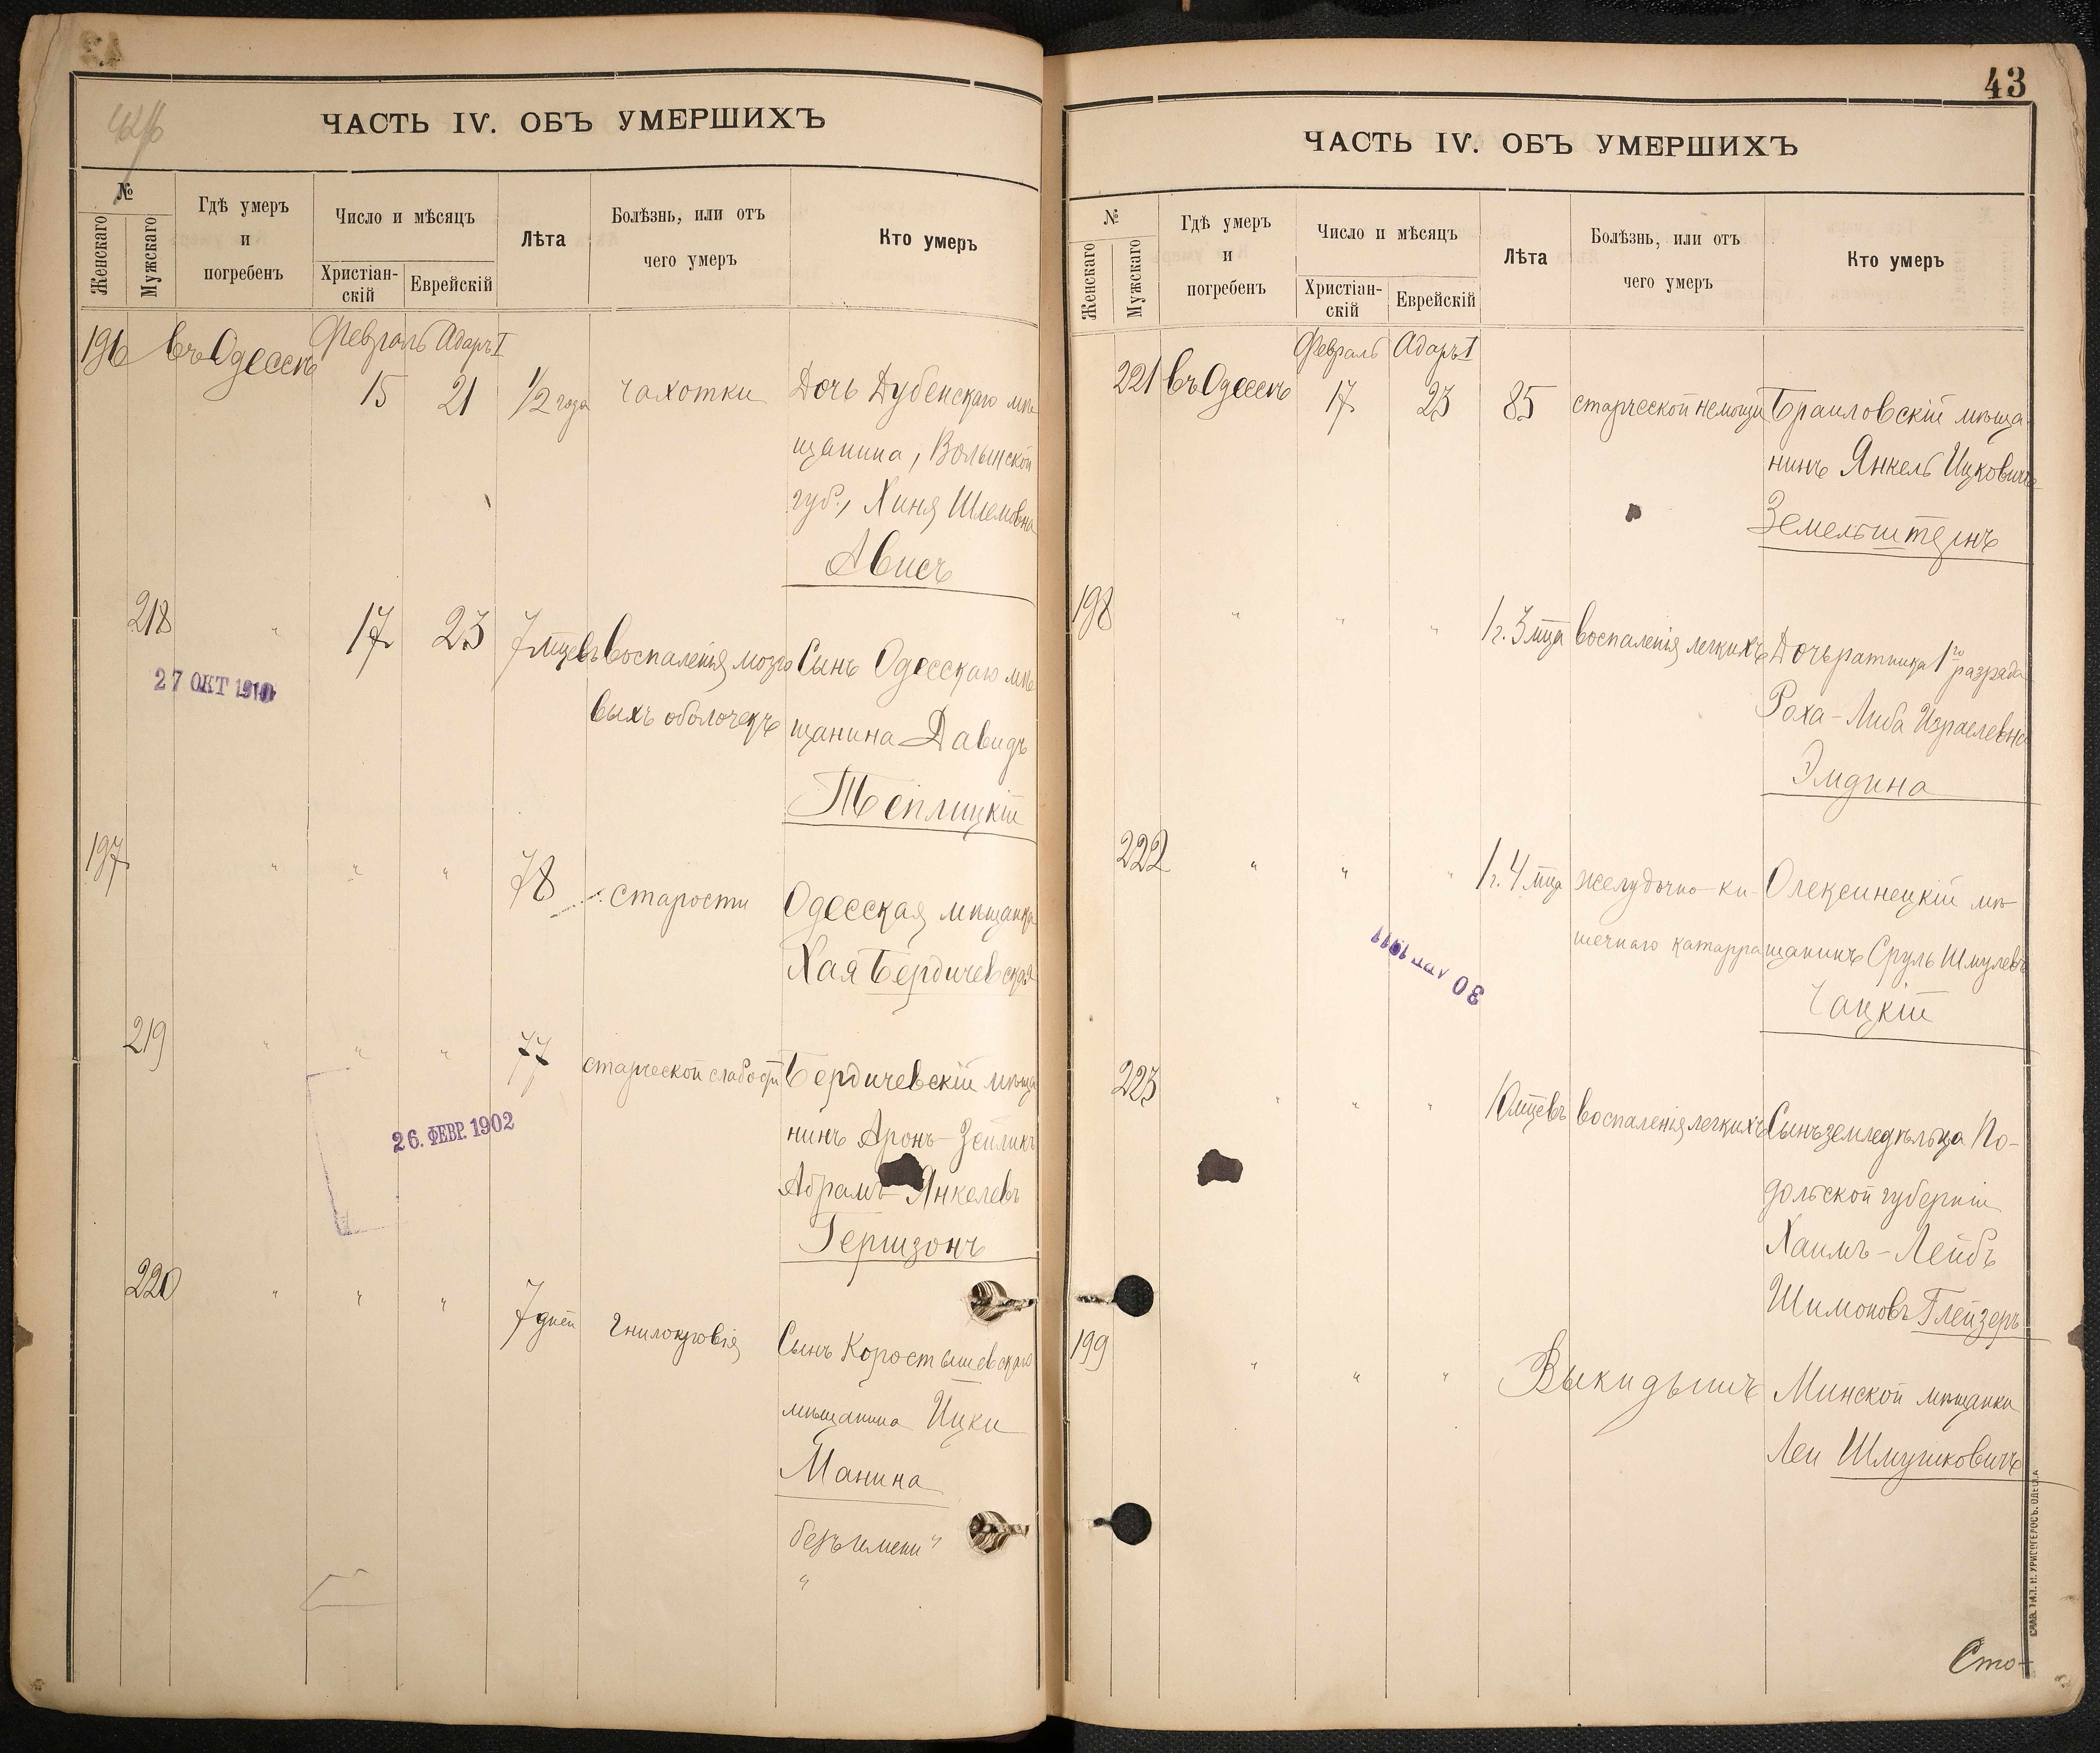 ЧАСТЬ IV. ОБЪ УМЕРШИХЪ
№
Женскаго
Мужскаго
Гдѣ умеръ
и
погребенъ
Число и мѣсяцъ
Христіан-
скій
Еврейскій
Лѣта
Болѣзнь, или отъ
чего умеръ
Кто умеръ
196 въ Одессѣ Февраль Адаръ I
15 21 1/2 года чахотки Дочь Дубенскаго мѣ
щанина, Волынской
губ., Хиня Шлемовна
Ависъ
218 " 17 23 7 мцевъ воспаленія мозго Сынъ Одесскаго мѣ
27 ОКТ 1910
выхъ оболочекъ щанина Давидъ
Теплицкій
197 " " " 78 старости Одесская мѣщанка
Хая Бердичевская
219 " " " 77 старческой слабости Бердичевскій мѣща
26. ФЕВР. 1902
нинъ Аронъ-Зейликъ
Абрамъ-Янкелевъ
Гершзонъ
220 " " " 7 дней гнилокровія Сынъ Коростышевскаго
мѣщанина Ицки
Манина
безъ имени "
"
43
ЧАСТЬ IV. ОБЪ УМЕРШИХЪ
№
Женскаго
Мужскаго
Гдѣ умеръ
и
погребенъ
Число и мѣсяцъ
Христіан-
скій
Еврейскій
Лѣта
Болѣзнь, или отъ
чего умеръ
Кто умеръ
Февраль Адаръ I
221 въ Одессѣ 17 23 85 старческой немощи Браиловскій мѣща-
нинъ Янкель Ицковичъ
Земельштейнъ
198 " " " 1 г. 3 мца воспаленія легкихъ Дочь ратника 1го разряда
Роха-Либа Израелевна
Эмдина
222 " " " 1 г. 4 мца желудочно-ки- Олексинецкій мѣ-
шечнаго катарра щанинъ Сруль Шмулевъ
30 1911
Чацкій
223 " " " 10 мцевъ воспаленія легкихъ Сынъ земледѣльца По-
дольской губерніи
Хаимъ-Лейбъ
Шимоновъ Глейзеръ
199 " " " Выкидышъ Минской мѣщанки
Леи Шмушковичъ
Сто-